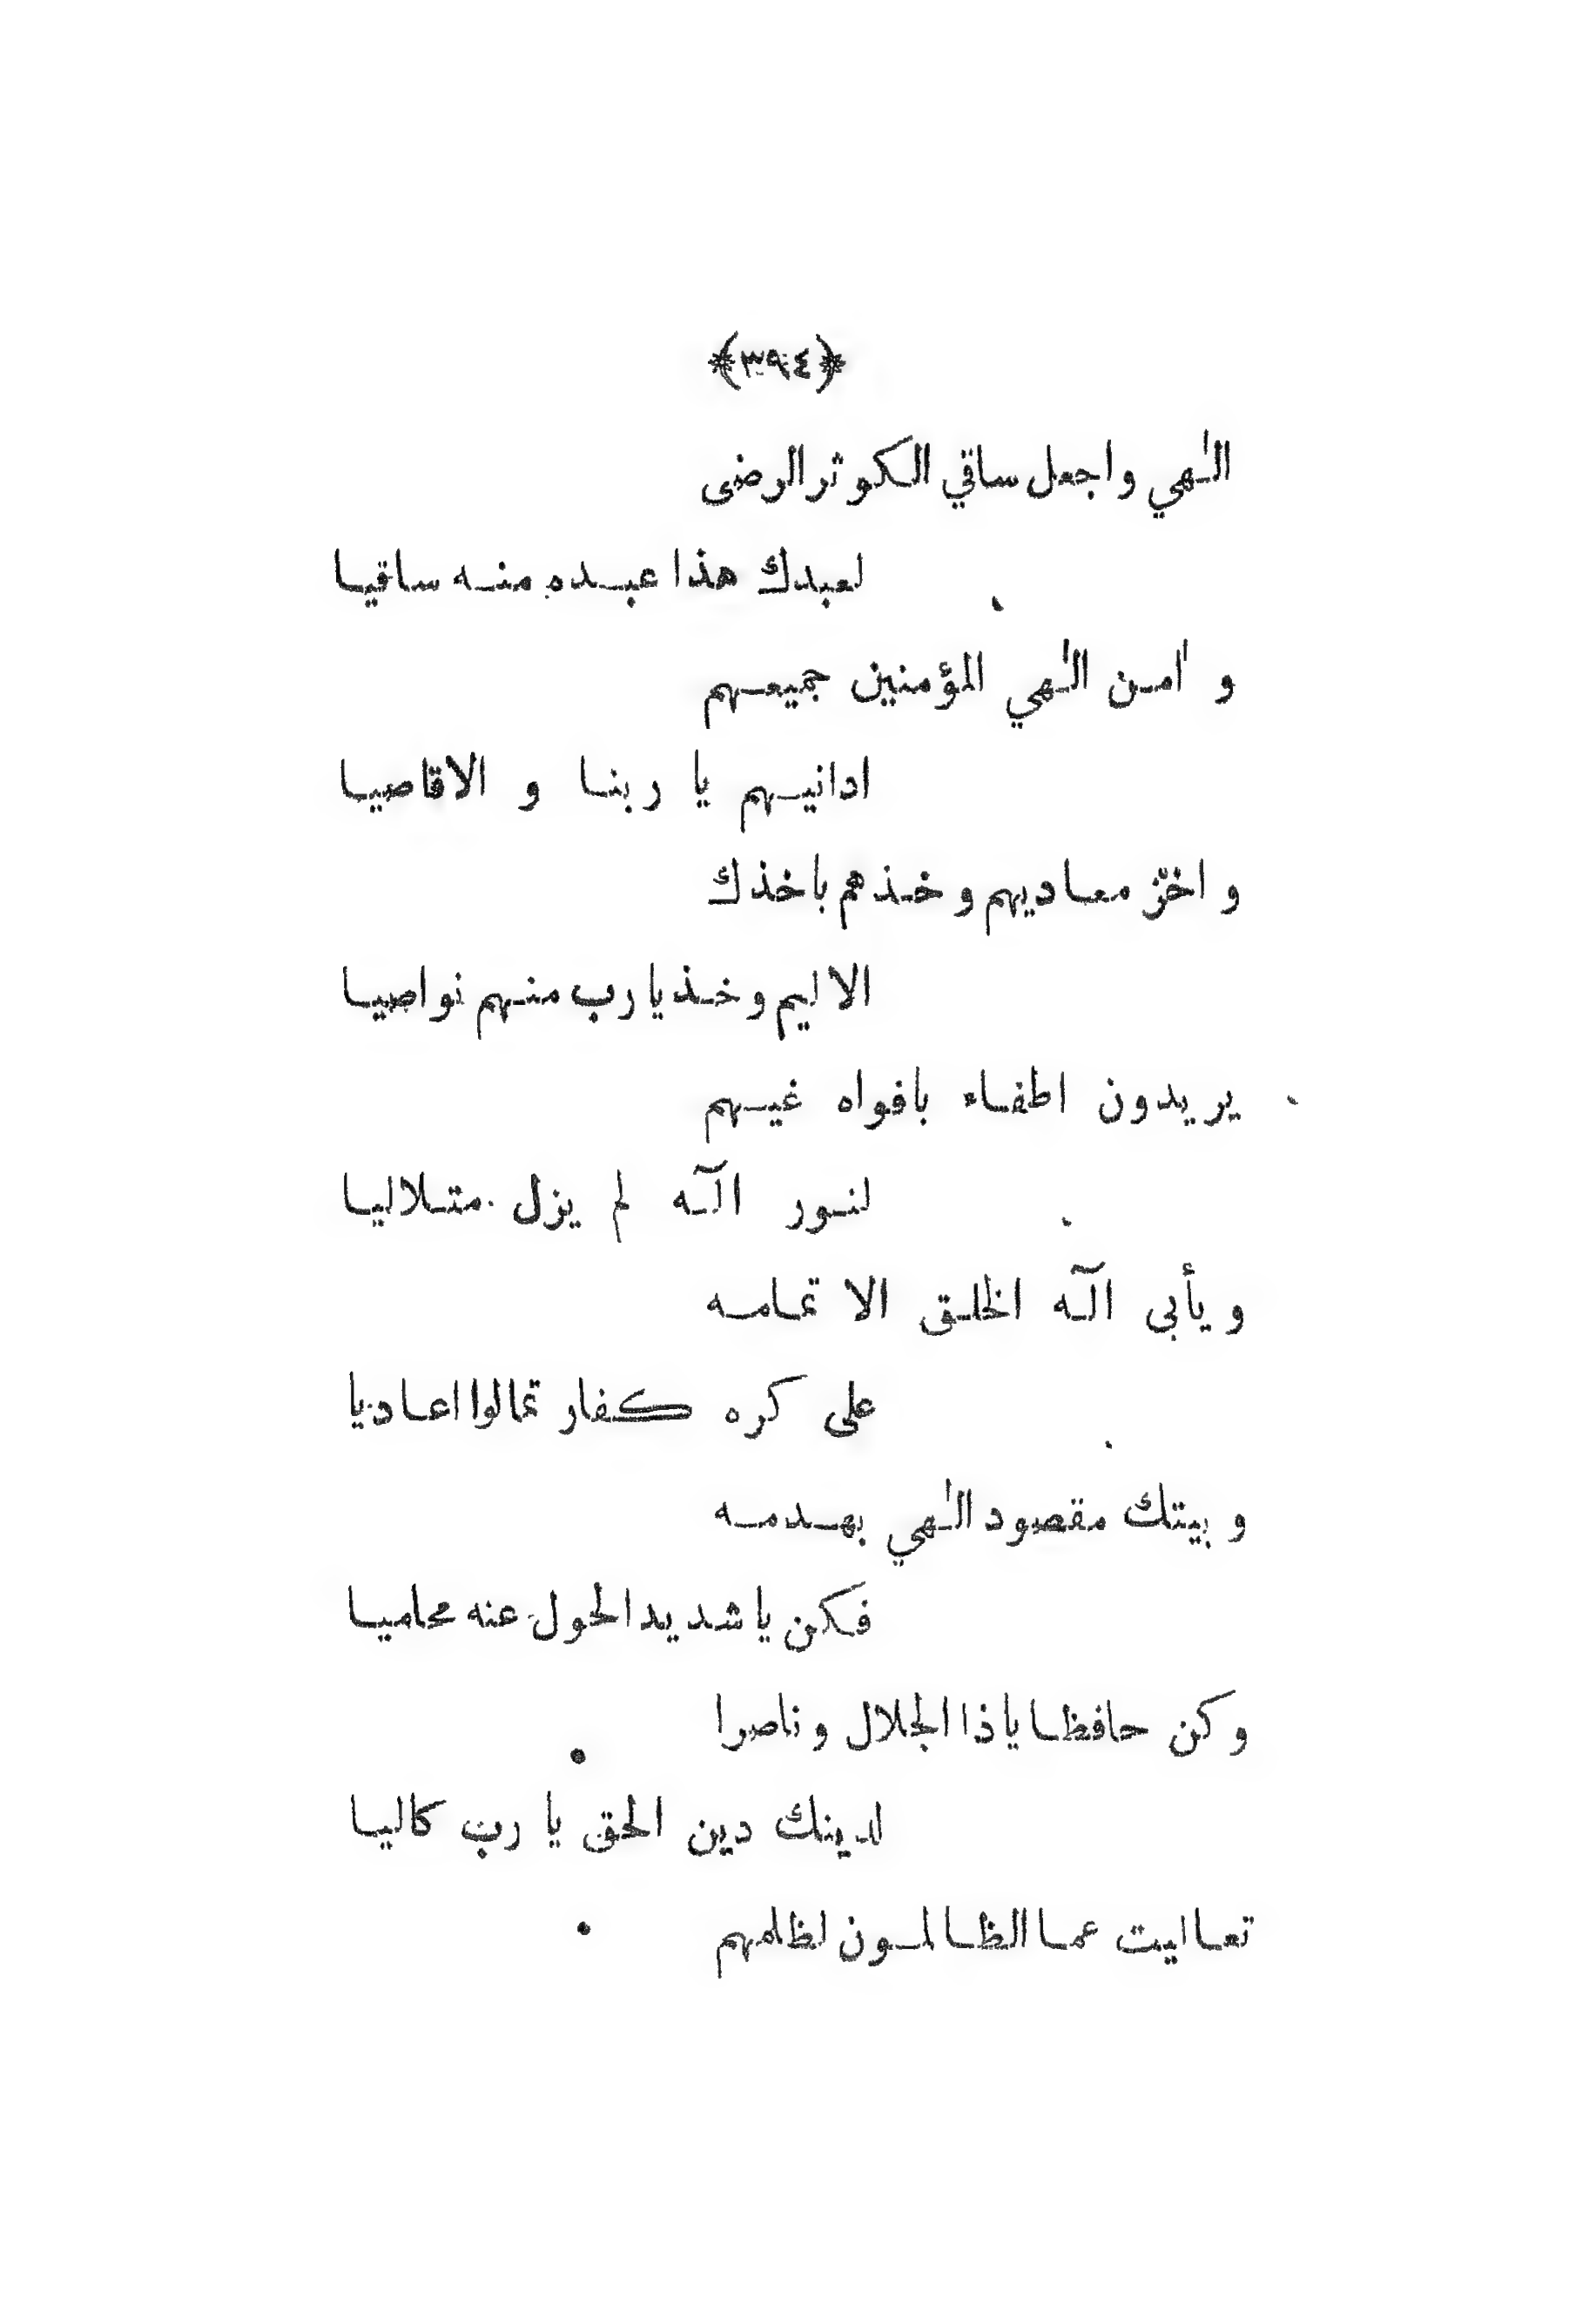 ﴿٣٩٤﴾
الٰهي واجعل ساقي الكوثر الرضى
لعبدك هذا عبده منه ساقيا
و اٰمن الٰهي المؤمنين جميعهم
ادانيهم يا ربنا و الاقاصيا
و اخز معاديهم وخذهم باخذك
الاليم وخذ يا رب منهم نواصيا
يريدون اطفاء بافواه غيهم
لنور آلٓه لم يزل متلاليا
ويأبى آلٓه الخلق الا تمامه
على كره كفار تمالوا اعاديا
و بيتك مقصود الٰهي بهدمه
فكن يا شديد الحول عنه محاميا
وكن حافظا يا ذا الجلال وناصرا
لدينك دين الحق يا رب كاليا
تعاليت عما الظالمون لظلمهم